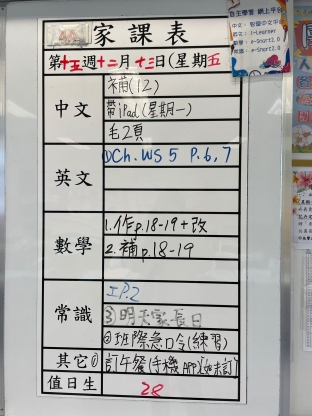 家課表
第十五週十二月十三日(星期五
中文
補(12)
帶iPad(星期一)
毛2頁
英文
①Ch.WS 5 P.6,7
數學
1.作p.18-19+改
2.補p.18-19
常識
I P.2
③明天家長日
②班際急口令(練習)
其它①
訂午餐(手機APP)(如未訂)
值日生
28
自主學習 網上平台